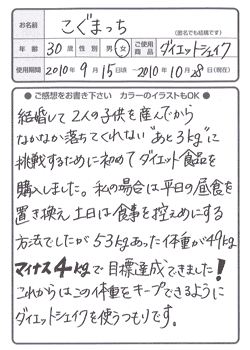 お名前 こぐまっち (匿名でも結構です)
年齢 30歳 性別 男・女 ご使用商品 ダイエットシェイク
使用期間 2010年9月15日頃〜2010年10月28日(現在)
●ご感想をお書き下さい カラーのイラストもOK●
結婚して2人の子供を産んでから
なかなか落ちてくれない"あと3kg"に
挑戦するために初めてダイエット食品を
購入しました。私の場合は平日の昼食を
置き換え土日は食事を控えめにする
方法でしたが53kgあった体重が49kg
マイナス4kgで目標達成できました!
これからはこの体重をキープできるように
ダイエットシェイクを使うつもりです。